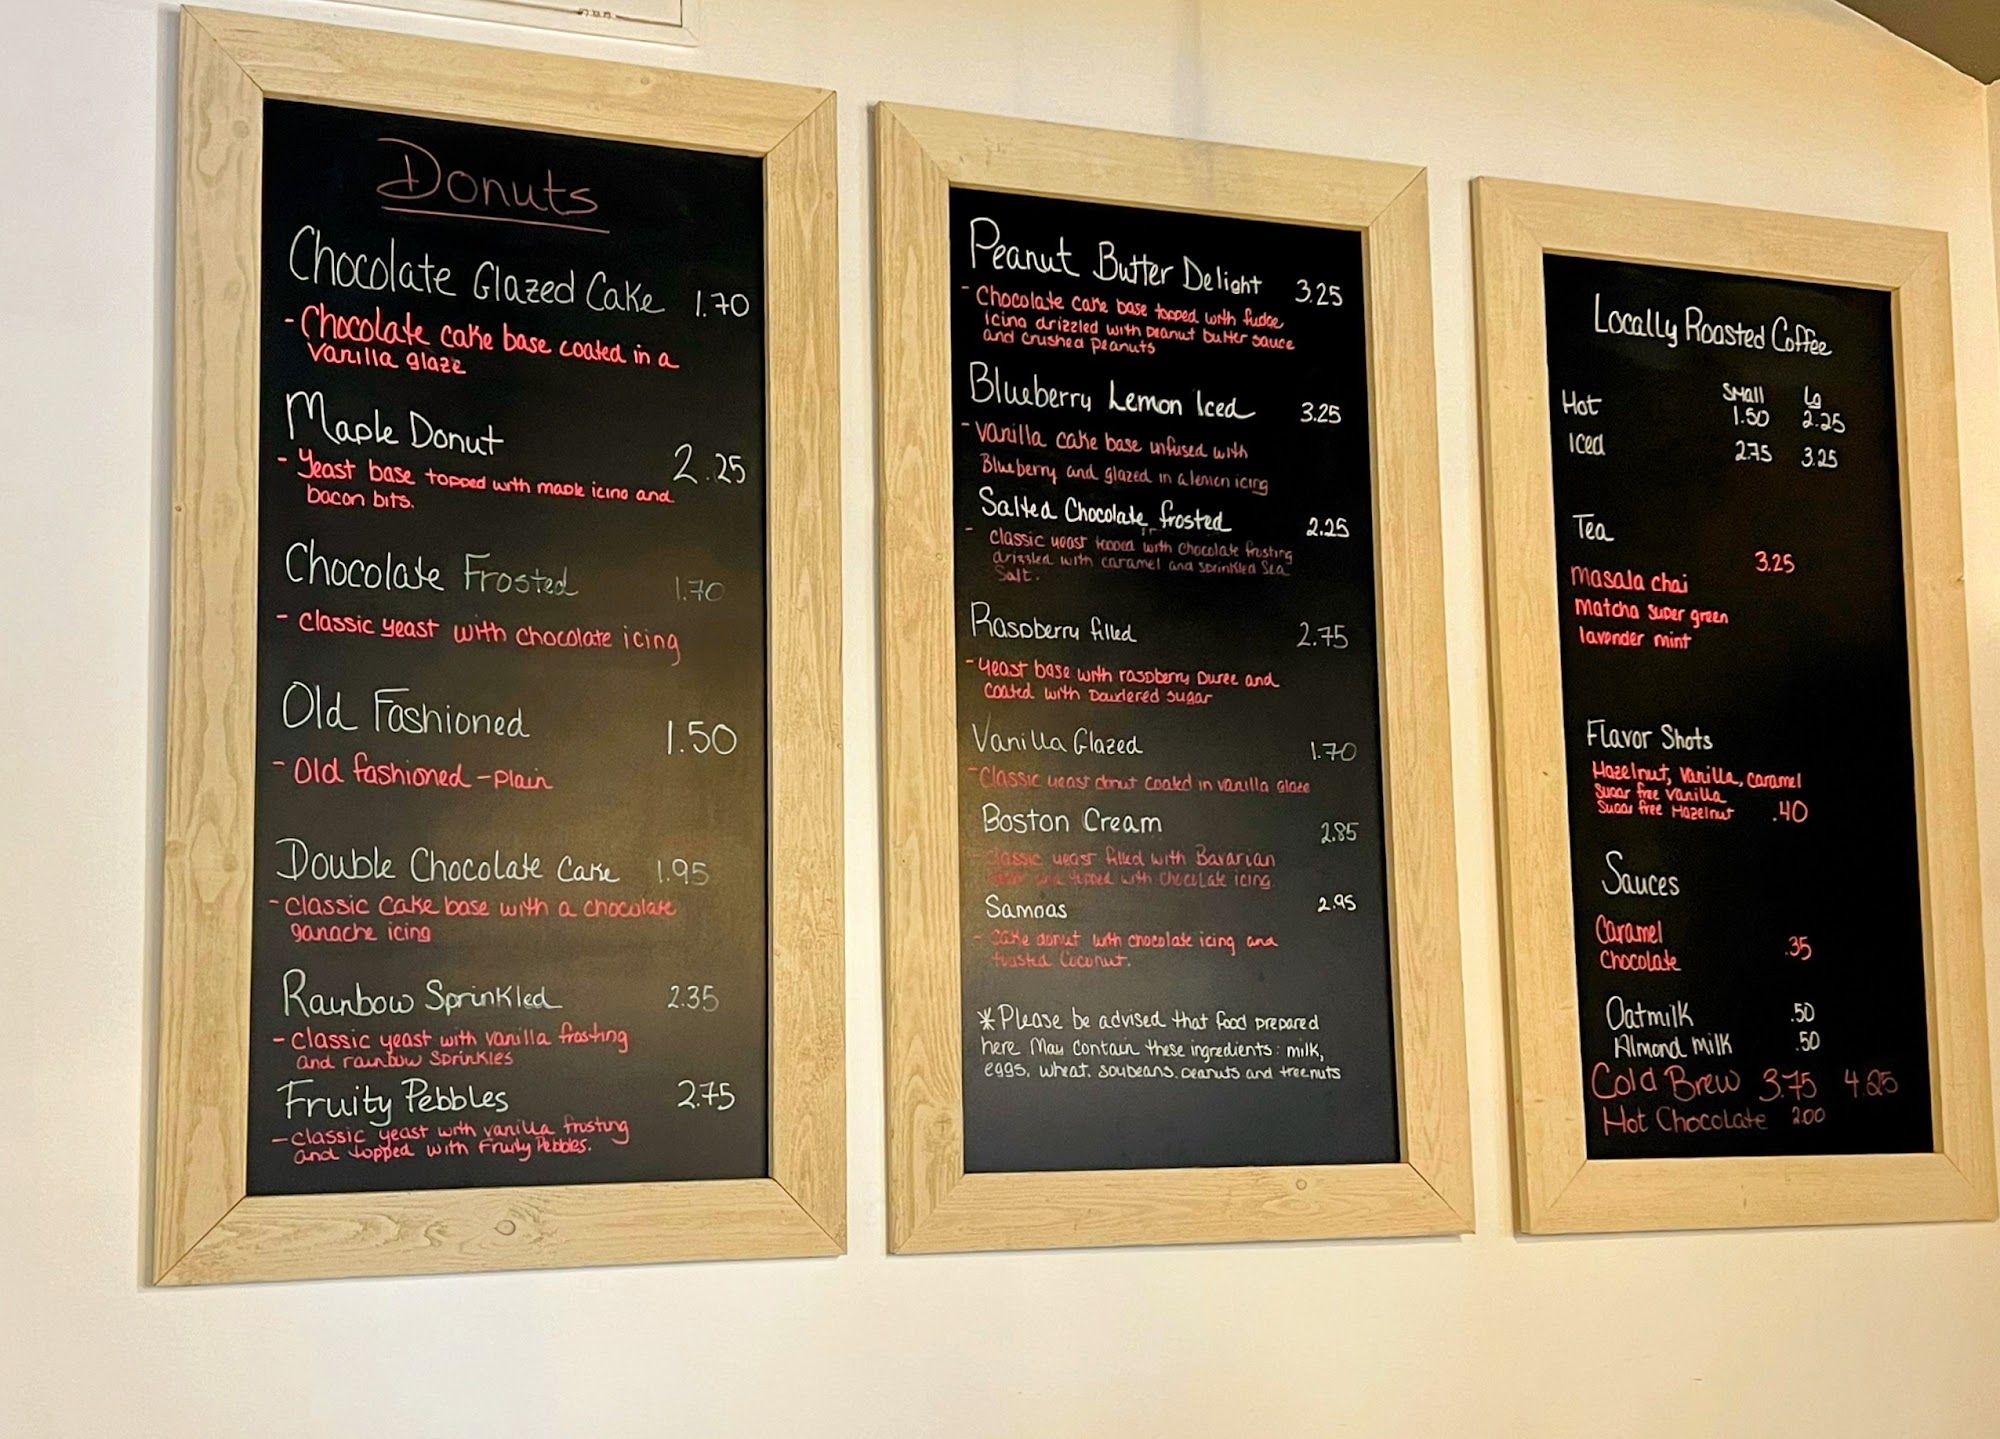 Donuts
Chocolate Glazed Cake 1.70
- Chocolate cake base coated in a
vanilla glaze
Maple Donut 2.25
- Yeast base topped with maple icing and
bacon bits.
Chocolate Frosted 1.70
- Classic yeast with chocolate icing
Old Fashioned 1.50
- Old fashioned - plain
Double Chocolate Cake 1.95
- Classic cake base with a chocolate
ganache icing
Rainbow Sprinkled 2.35
- Classic yeast with vanilla frosting
and rainbow sprinkles
Fruity Pebbles 2.75
- Classic yeast with vanilla frosting
and topped with Fruity Pebbles.
Peanut Butter Delight 3.25
- Chocolate cake base topped with fudge
icing drizzled with peanut butter sauce
and crushed peanuts
Blueberry Lemon Iced 3.25
- Vanilla cake base infused with
Blueberry and glazed in a lemon icing
Salted Chocolate frosted 2.25
- Classic yeast topped with chocolate frosting
drizzled with caramel and sprinkled Sea
Salt.
Raspberry filled 2.75
- Yeast base with raspberry puree and
coated with powdered sugar
Vanilla Glazed 1.70
- Classic yeast donut coated in vanilla glaze
Boston Cream 2.85
Classic yeast filled with Bavarian
and topped with chocolate icing
Samoas 2.95
- Cake donut with chocolate icing and
toasted Coconut.
* Please be advised that food prepared
here May contain these ingredients: milk,
eggs, wheat, soybeans, peanuts and treenuts
Locally Roasted Coffee
Small Lg
Hot 1.50 2.25
Iced 2.75 3.25
Tea
3.25
Masala chai
Matcha super green
lavender mint
Flavor Shots
Hazelnut, Vanilla, caramel
Sugar free vanilla
Sugar free Hazelnut .40
Sauces
Caramel
Chocolate .35
Oatmilk .50
Almond Milk .50
Cold Brew 3.75 4.25
Hot Chocolate 2.00